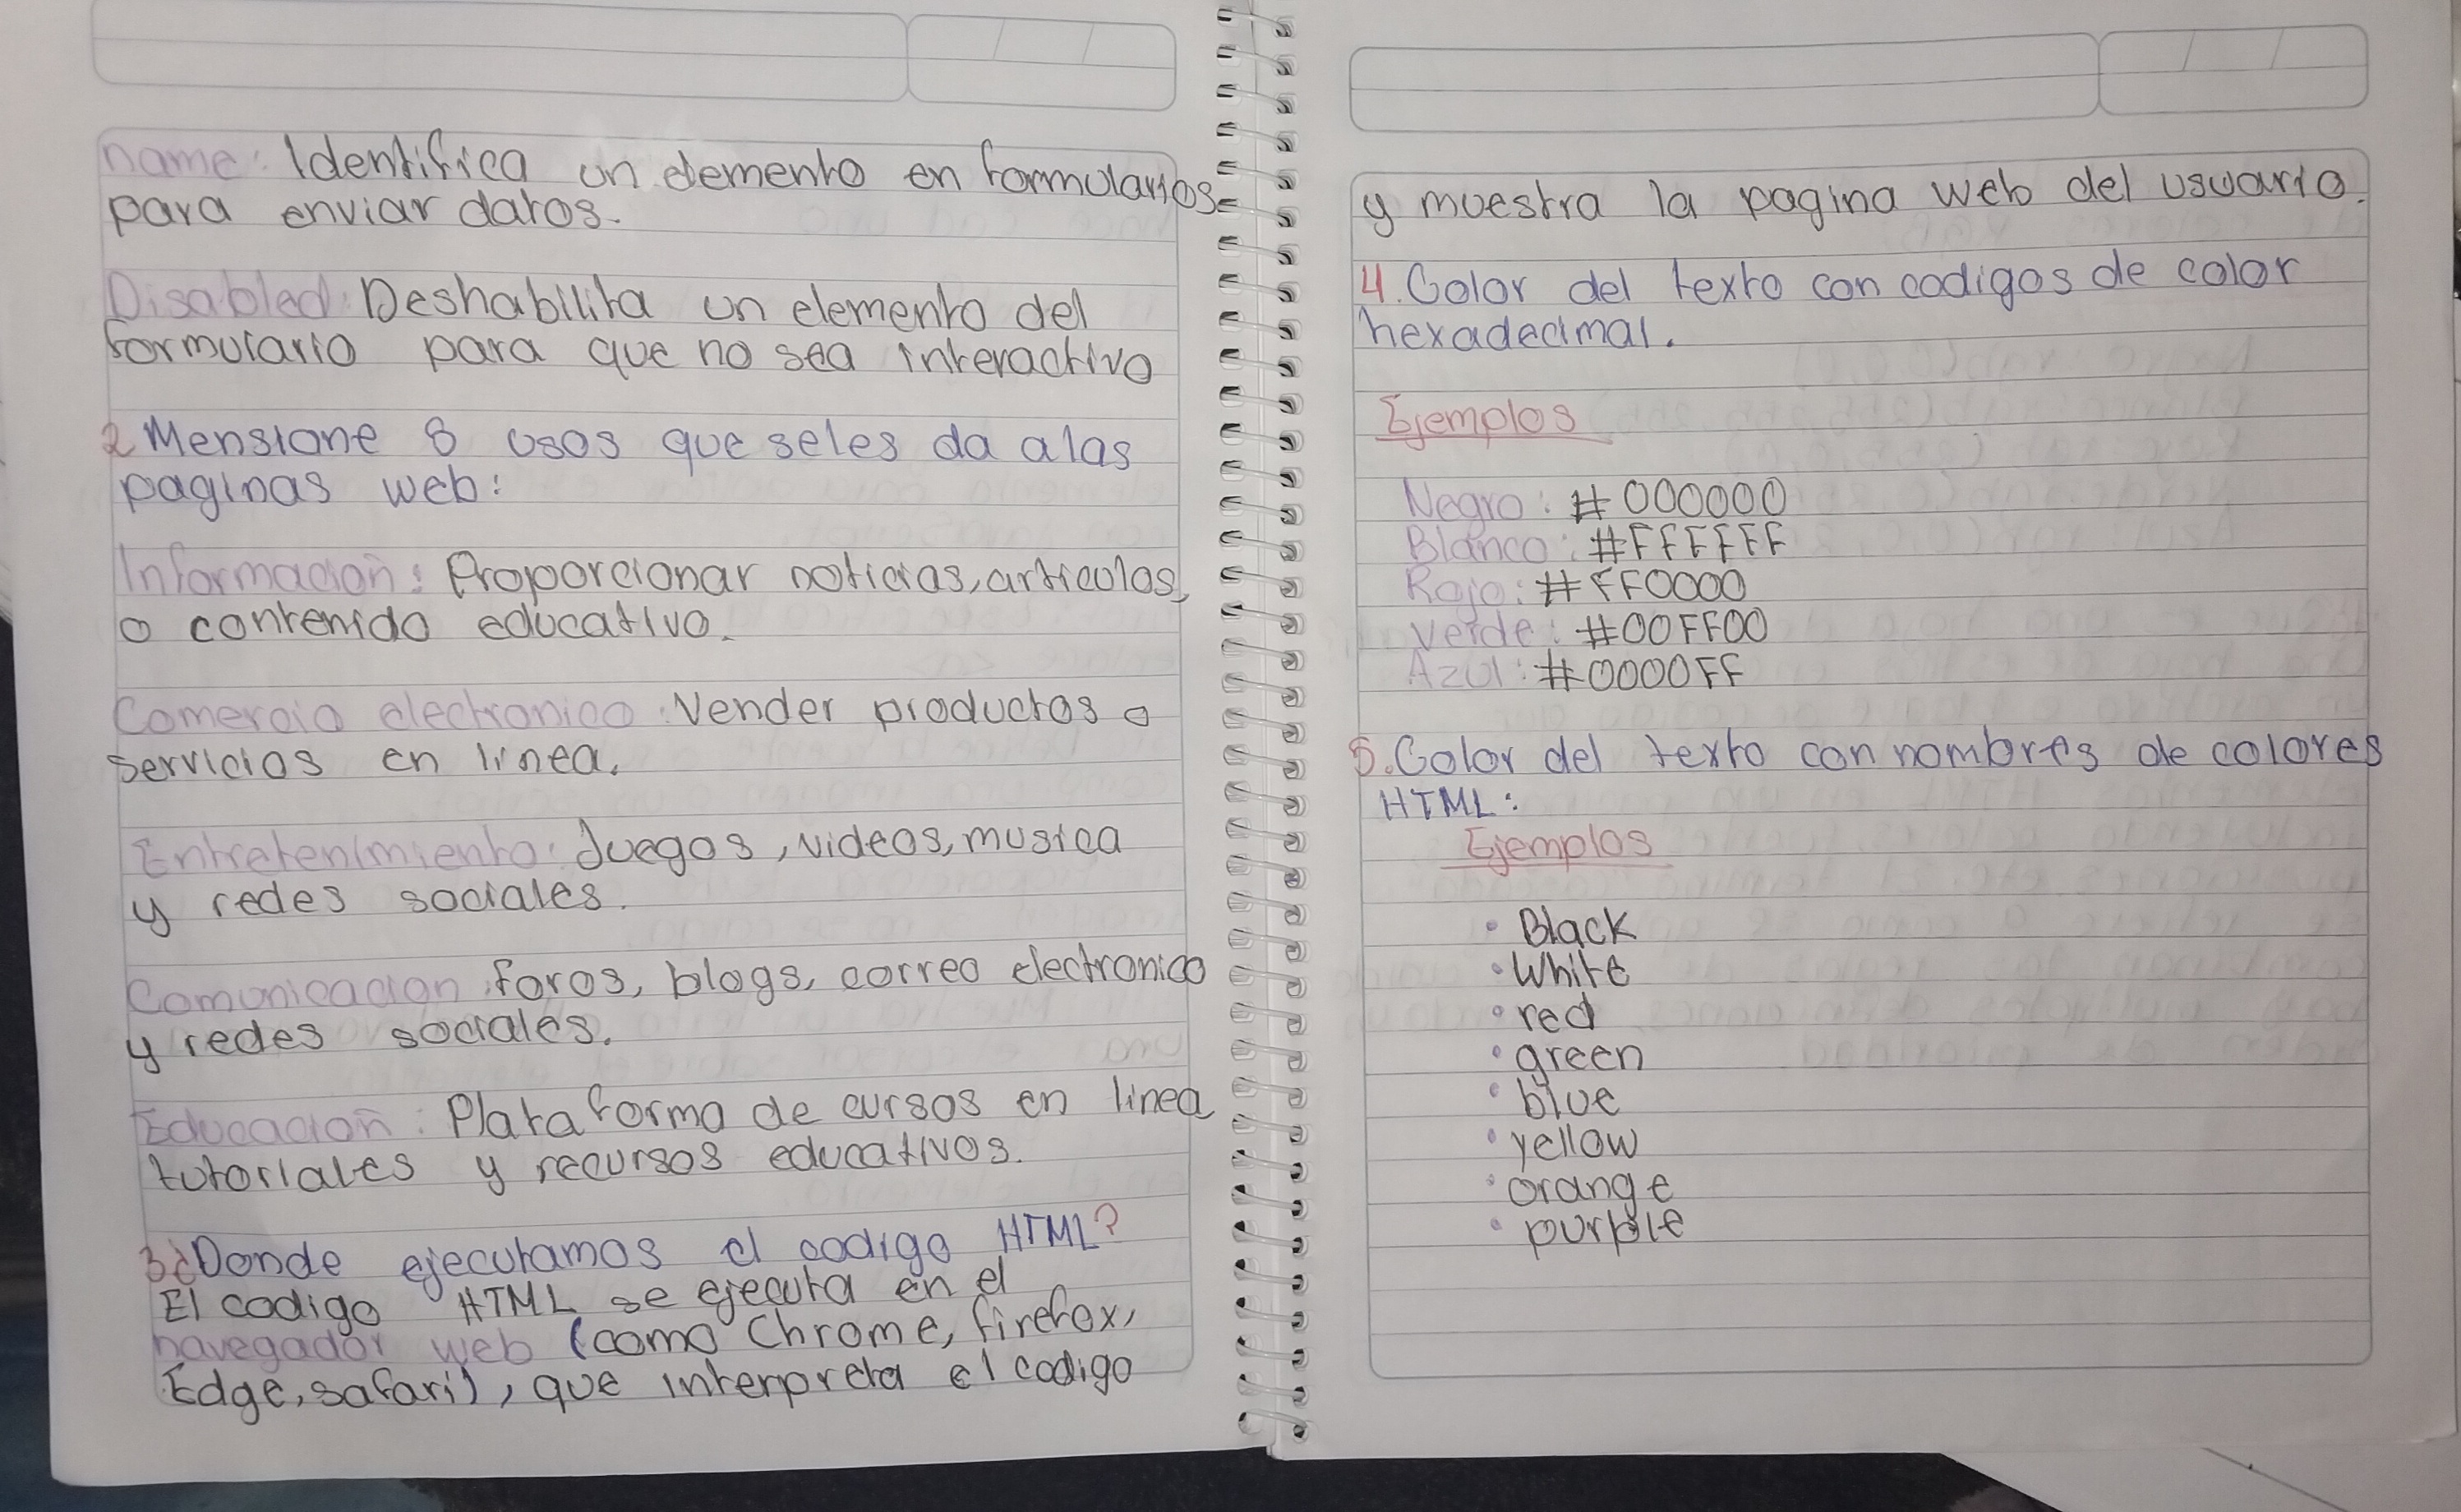 name: Identifica un elemento en formularios
para enviar datos.
Disabled: Deshabilita un elemento del
formulario para que no sea interactivo
2 Mensione 8 usos que seles da a las
paginas web:
Informacion: Proporcionar noticias, articulos,
o contenido educativo.
Comercio electronico: Vender productos o
servicios en linea.
Entretenimiento: Juegos, videos, musica
y redes sociales.
Comunicacion: foros, blogs, correo electronico
y redes sociales.
Educacion: Plataforma de cursos en linea
tutoriales y recursos educativos.
3¿Donde ejecutamos el codigo HTML?
El codigo HTML se ejecuta en el
navegador web (como Chrome, firefox,
Edge, safari), que interpreta el codigo
y muestra la pagina web del usuario.
4. Color del texto con codigos de color
hexadecimal.
Ejemplos
Negro: #000000
Blanco: #FFFFFF
Rojo: #FF0000
Verde: #00FF00
Azul: #0000FF
5. Color del texto con nombres de colores
HTML:
Ejemplos
• Black
• White
• red
• green
• blue
• yellow
• orange
• purple